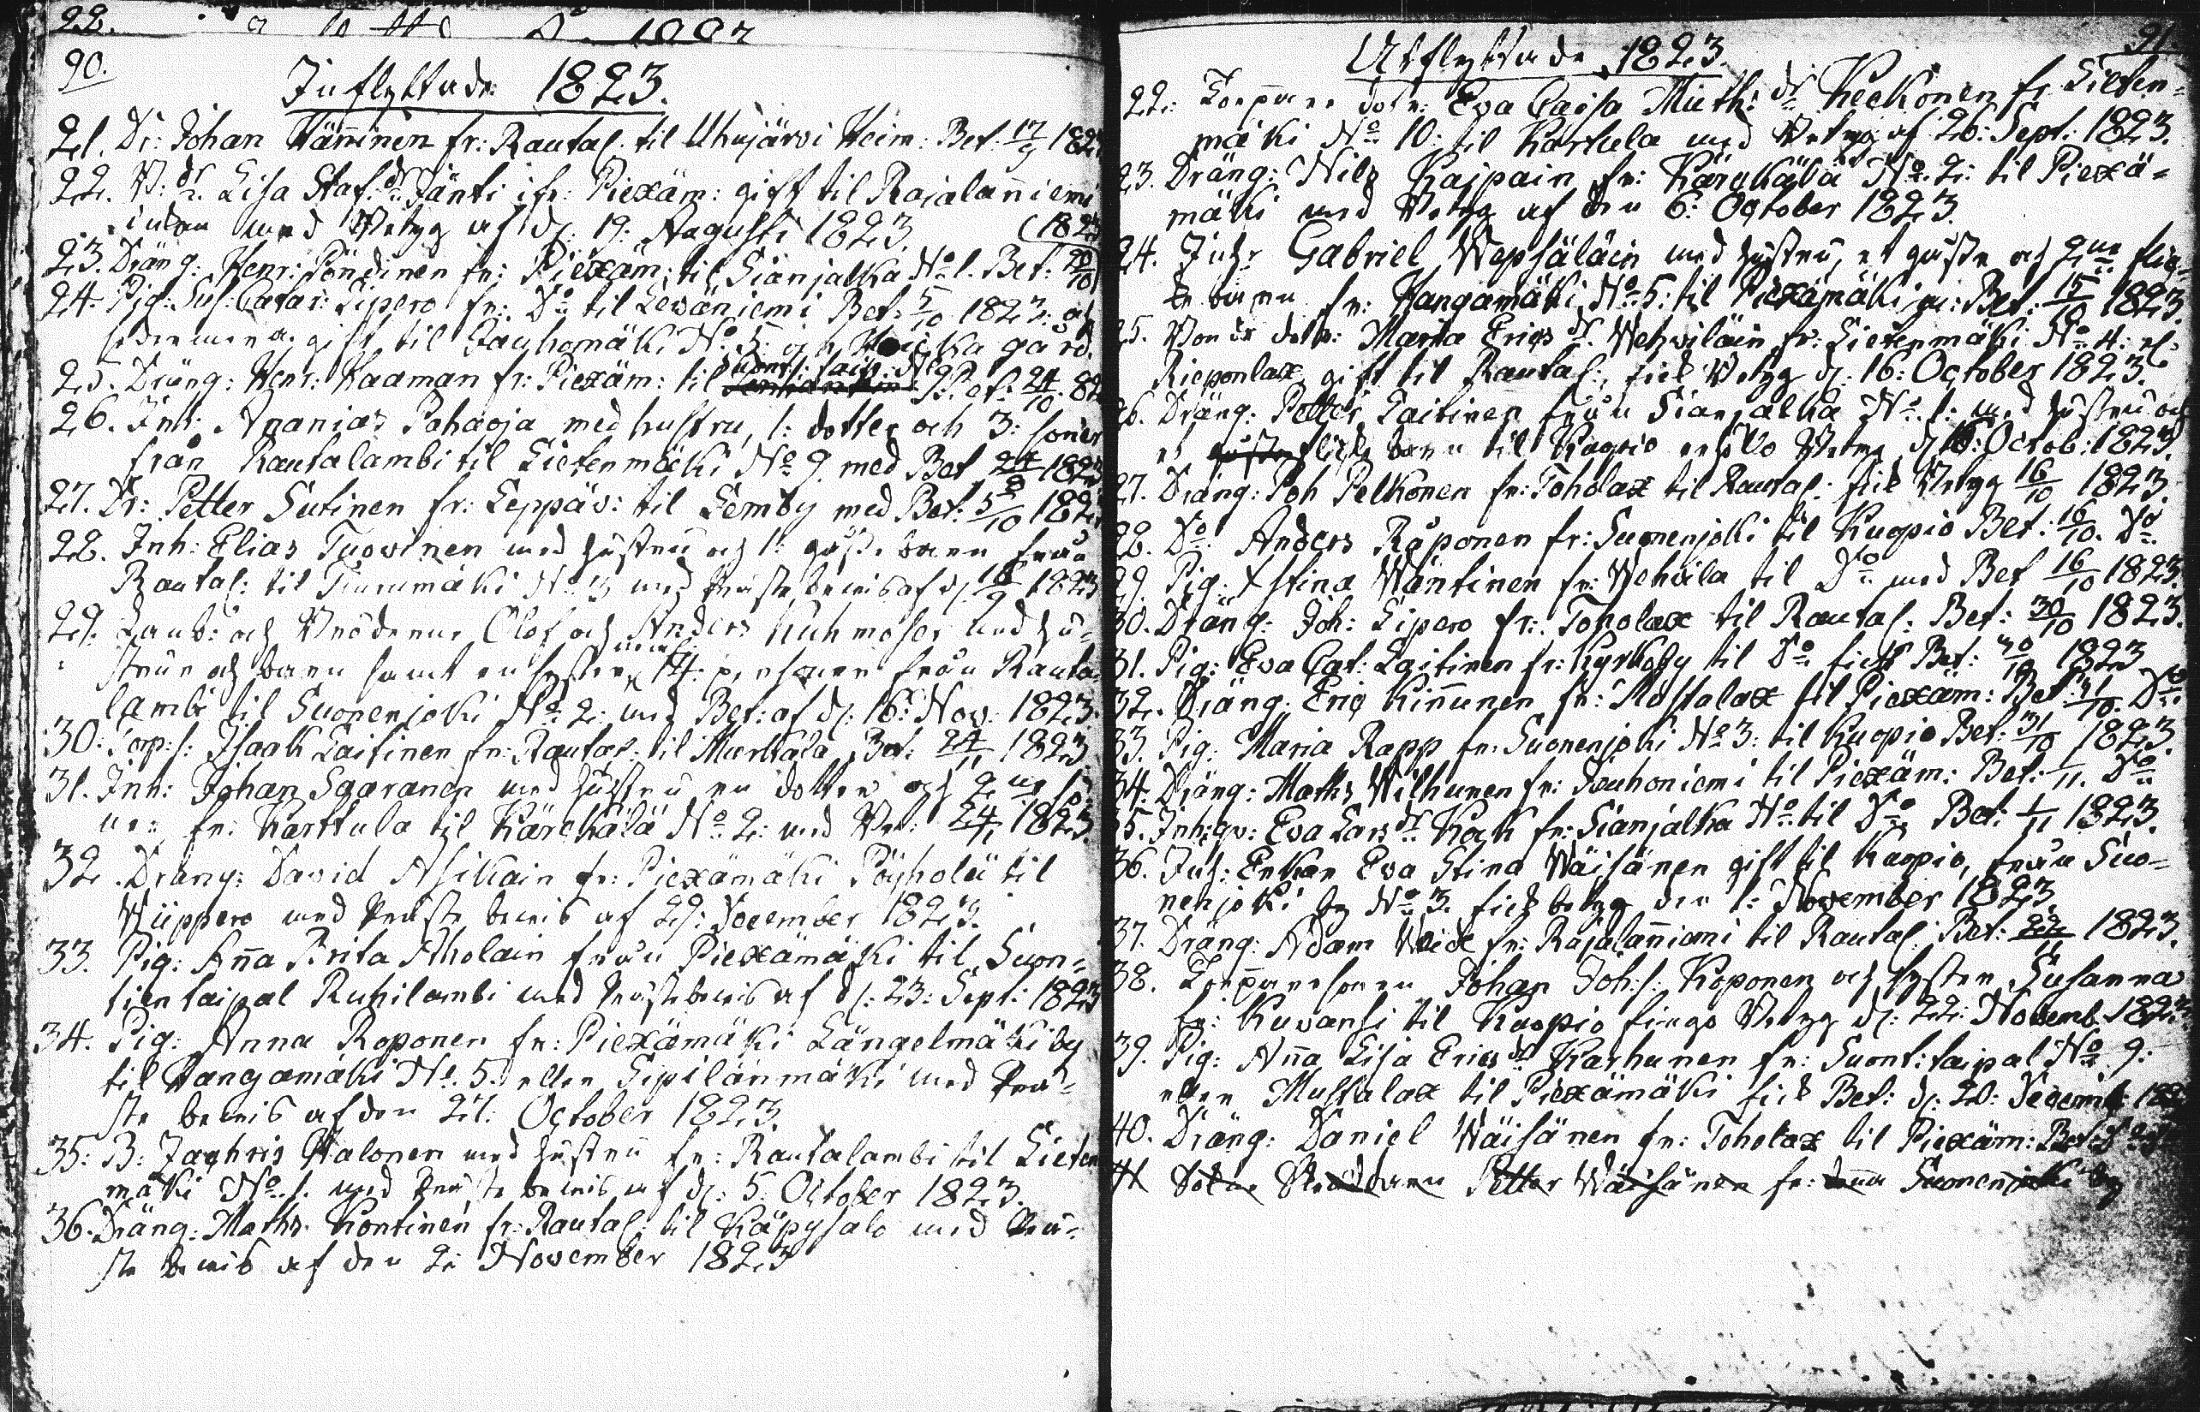 90.
Inflyttade 1823.
21. Dr: Johan Hänninen fr: Rautal: til Uhujärvi Heim: Bet: 17/9 182
22. P: dr. Lisa Staf: dr Jänti ifr: Piexäm: gift til Rajalanniemi
med Betyg af d: 19: Augusti 1823.
(1823
23. Dräng: Henr: Pöndinen fr: Piexäm: til Sianjalka No 1. Bet: 20/10
24. Pig: Catar: Lipero fr: Do til Lewäniemi Bet: 5/10 1823: och
gift til Jauhomäki No 5: och gård.
Suont: taip: No
25. Dräng: Henr: Kaaman fr: Piexäm: til 9 Bet: 24/10 82
26. Inh: Ananias Pahaoja med hustru, 1: dotter och 3: söner
från Rautalambi til Lietenmäki No 9. med Bet 1823
27. Dr: Petter Sutinen fr: Leppäv: til Lemby med Bet: 5/10 182
28. Inh: Elias Tuovinen med hustru och 1: gosse barn från
Rautal: til No 3 med Prästebewis af d: 16/9 1823
29. Landb: och Bröderne Olof och Anders Kuhmoser med hu-
struer och barn samt en syster 14: personer från Rauta-
lambi til Suonenjoki No 2: med Bet: af d: 16: Nov: 1823.
30: Torp: s: Isaak Laitinen fr: Rautal: til Markala, Bet: 24/11 1823.
31. Inh: Johan Saaranen med hustru en dotter och 2ne sö-
ner fr: Karttula til Kärckälä No 2: med Bet: 24/11 1823.
32. Dräng: David Asikain fr: Piexämäki Pöyhölä til
Wiippero med Präste bewis af 29: December 1823.
33. Pig: Anna Brita Aholain från Piexämäki til Suon-
tien taipal Ruhilambi med Prästebewis af d: 23: Sept: 1823
34. Pig: Anna Roponen fr: Piexämäki Längelmäki by
til Kangasmäki No. 5. eller Sipilänmäki med Prä-
ste bewis af den 27: October 1823.
35: B: Zachris Halonen med hustru fr: Rautalambi til Lieten
mäki No 1. med Präste bewis af d: 5: October 1823.
36. Dräng: Maths Kontinen fr: Rautal: til Käpysalo med Prä-
ste bewis af den 2: November 1823
91.
Utflyttade 1823.
22: Torpare dotr: Eva Caisa Math: dr Keckonen fr Lieten-
mäki No 10: til Karttula med Betyg af 26: Sept: 1823.
23. Dräng: Nils Kaipain fr: Kärckälä No 2: til Piexä-
mäki med Betyg af den 6: October 1823.
24. Inh: Gabriel Wepsäläin med hustru, et gosse och 2ne flic-
ke barn fr: Kangamäki No 5: til Piexämäki m: Bet: 15/10 1823.
25. Bonde dotr: Marta Erics dr. Wehviläin fr: Lietenmäki No 4: el:
Rieponlax gift til Rautal:, fick Betyg d: 16: October 1823.
26. Dräng: Petter Laitinen från Sianjalka No 1: med hustru och
et flicke barn til Kuopio Betyg d 16: Octob: 1823.
27. Dräng: Joh Pelkonen fr: Toholax til Rautal: fick Betyg 16/10 1823.
28. Do Anders Råponen fr: Suonenjoki til Kuopio Bet: 16/10. Do
29. Pig: Xstina Wäntinen fr: Wehvilä til Do med Bet 16/10 1823.
30. Dräng: Joh: Lipero fr: Toholax til Rautal: Bet: 30/10 1823.
31. Pig: Eva Cat: Laitinen fr: Kyrkoby til Do fick Bet: 30/10 1823
32. Dräng Eric Kinnunen fr: Mustalax til Piexäm: Bet: 31/10. Do
33. Pig: Maria Rapp fr: Suonenjoki No 3: til Kuopio Bet: 31/10 1823.
34. Dräng: Maths Wilhunen fr: Jauhoniemi til Piexäm: Bet: 1/11. Do
35. Inh: qv: Eva Lars dr Kock fr: Sianjalka No til Do Bet: 1/11 1823.
36. Inh: Enkan Eva Stina Wäisänen gift til Kuopio, från Suo-
nenjoki by No 3. fick betyg den 1: November 1823.
37. Dräng: Adam Weide fr: Rajalanniemi til Rautal: Bet: 22/11 1823.
38. Torparesonen Johan Joh: s: Koponen och syster Susanna
fr: Kuvansi til Kuopio fingo Betyg d: 22: Novemb 1823
39. Pig: Anna Lisa Erics dr Karhunen fr: Suont: taipal No 9:
eller Mustalax til Piexämäki fick Bet: d: 20: Decemb: 182
40. Dräng: Daniel Wäisänen fr: Toholax til Piexäm: Bet:
41 Petter Wäisänen fr: Suonenjoki by